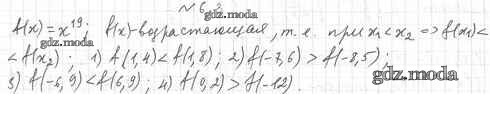 №6
f(x) = x¹⁹; f(x)-возрастающая, т.е. при x₁ < x₂ => f(x₁) <
< f(x₂); 1) f(1,4) < f(1,8); 2) f(-7,6) > f(-8,5);
gdz.moda
3) f(-6,9) < f(6,9); 4) f(0,2) > f(-12).
gdz.moda